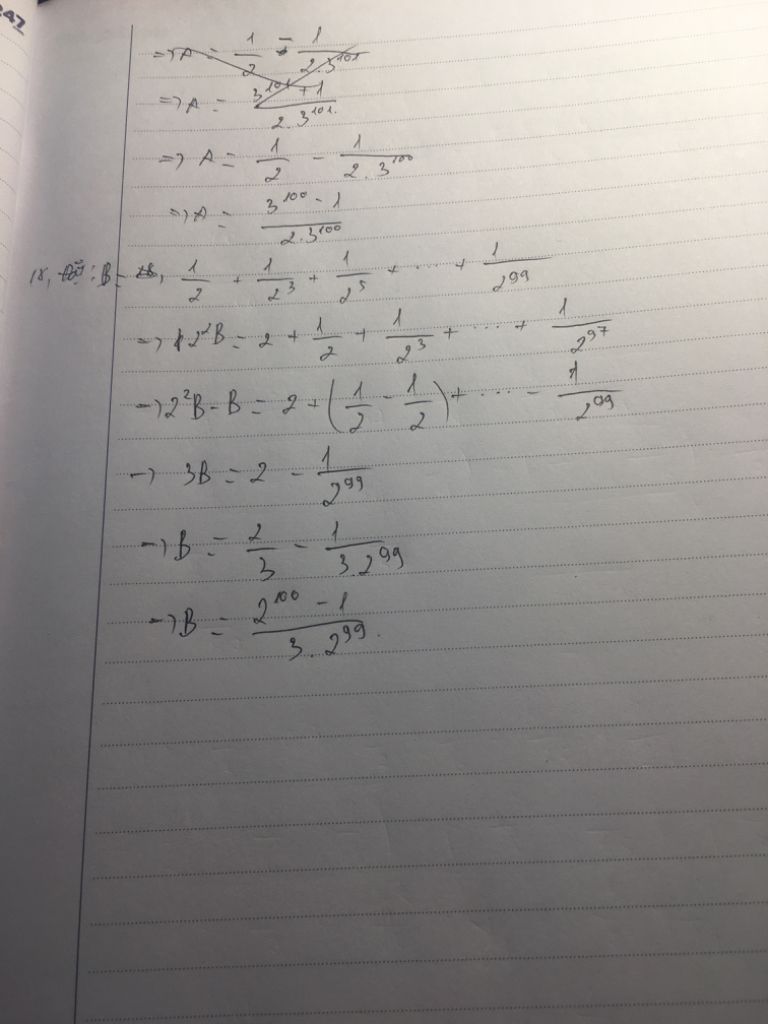 247
=> A = 1/2 - 1/(2.3^101)
=> A = (3^101 + 1)/(2.3^101).
=> A = 1/2 - 1/(2.3^100)
=> A = (3^100 - 1)/(2.3^100)
18, : B = 1/2 + 1/2^3 + 1/2^5 + ... + 1/2^99
=> 2^2B = 2 + 1/2 + 1/2^3 + ... + 1/2^97
=> 2^2B - B = 2 + (1/2 - 1/2) + ... - 1/2^99
=> 3B = 2 - 1/2^99
=> B = 2/3 - 1/(3.2^99)
=> B = (2^100 - 1)/(3.2^99).